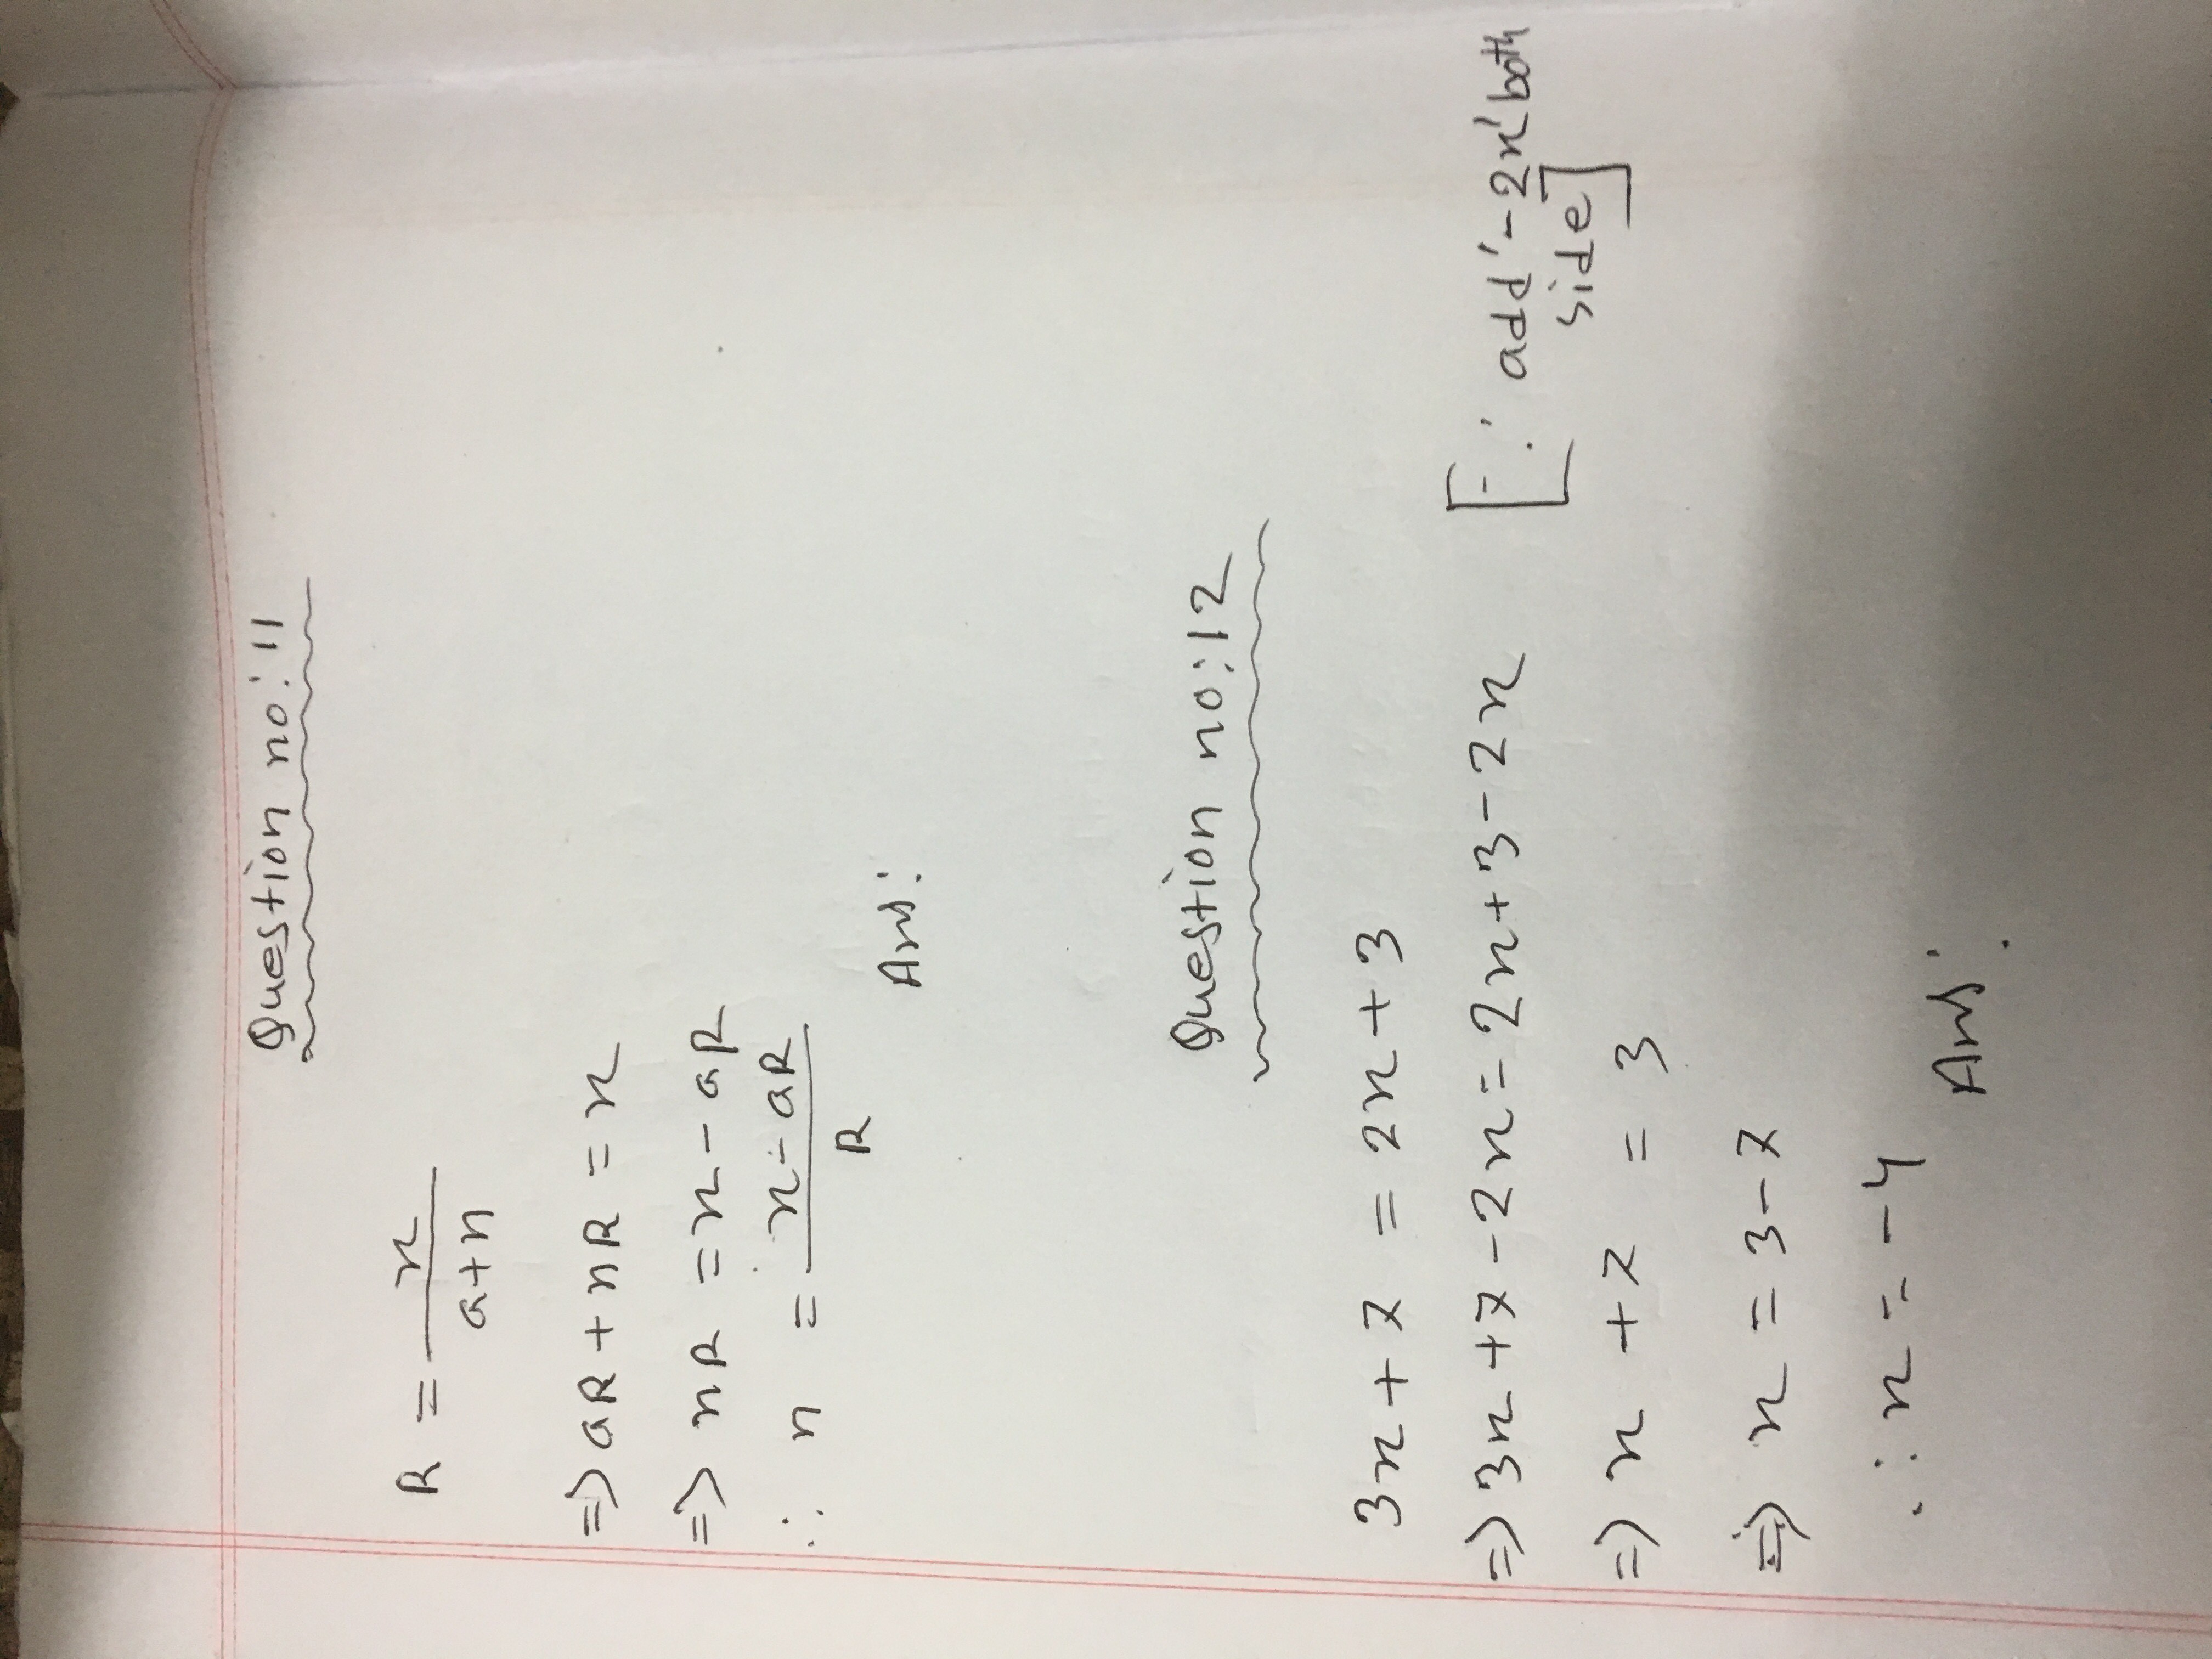 Question no: 11
R = x / a+n
=> aR + nR = x
=> nR = x - aR
∴ n = x - aR / R
Ans:
Question no: 12
3x + 7 = 2x + 3
=> 3x + 7 - 2x = 2x + 3 - 2x [∵ add '-2x' both
side]
=> x + 7 = 3
=> x = 3 - 7
∴ x = -4
Ans: